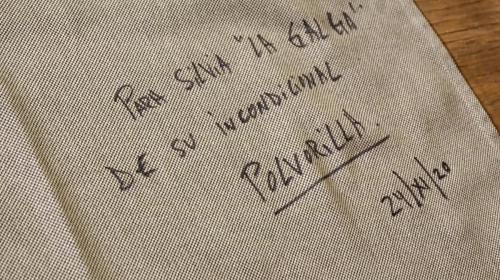 PARA SILVIA "LA GALGA"
DE SU INCONDICIONAL
POLVORILLA.
24/XI/20